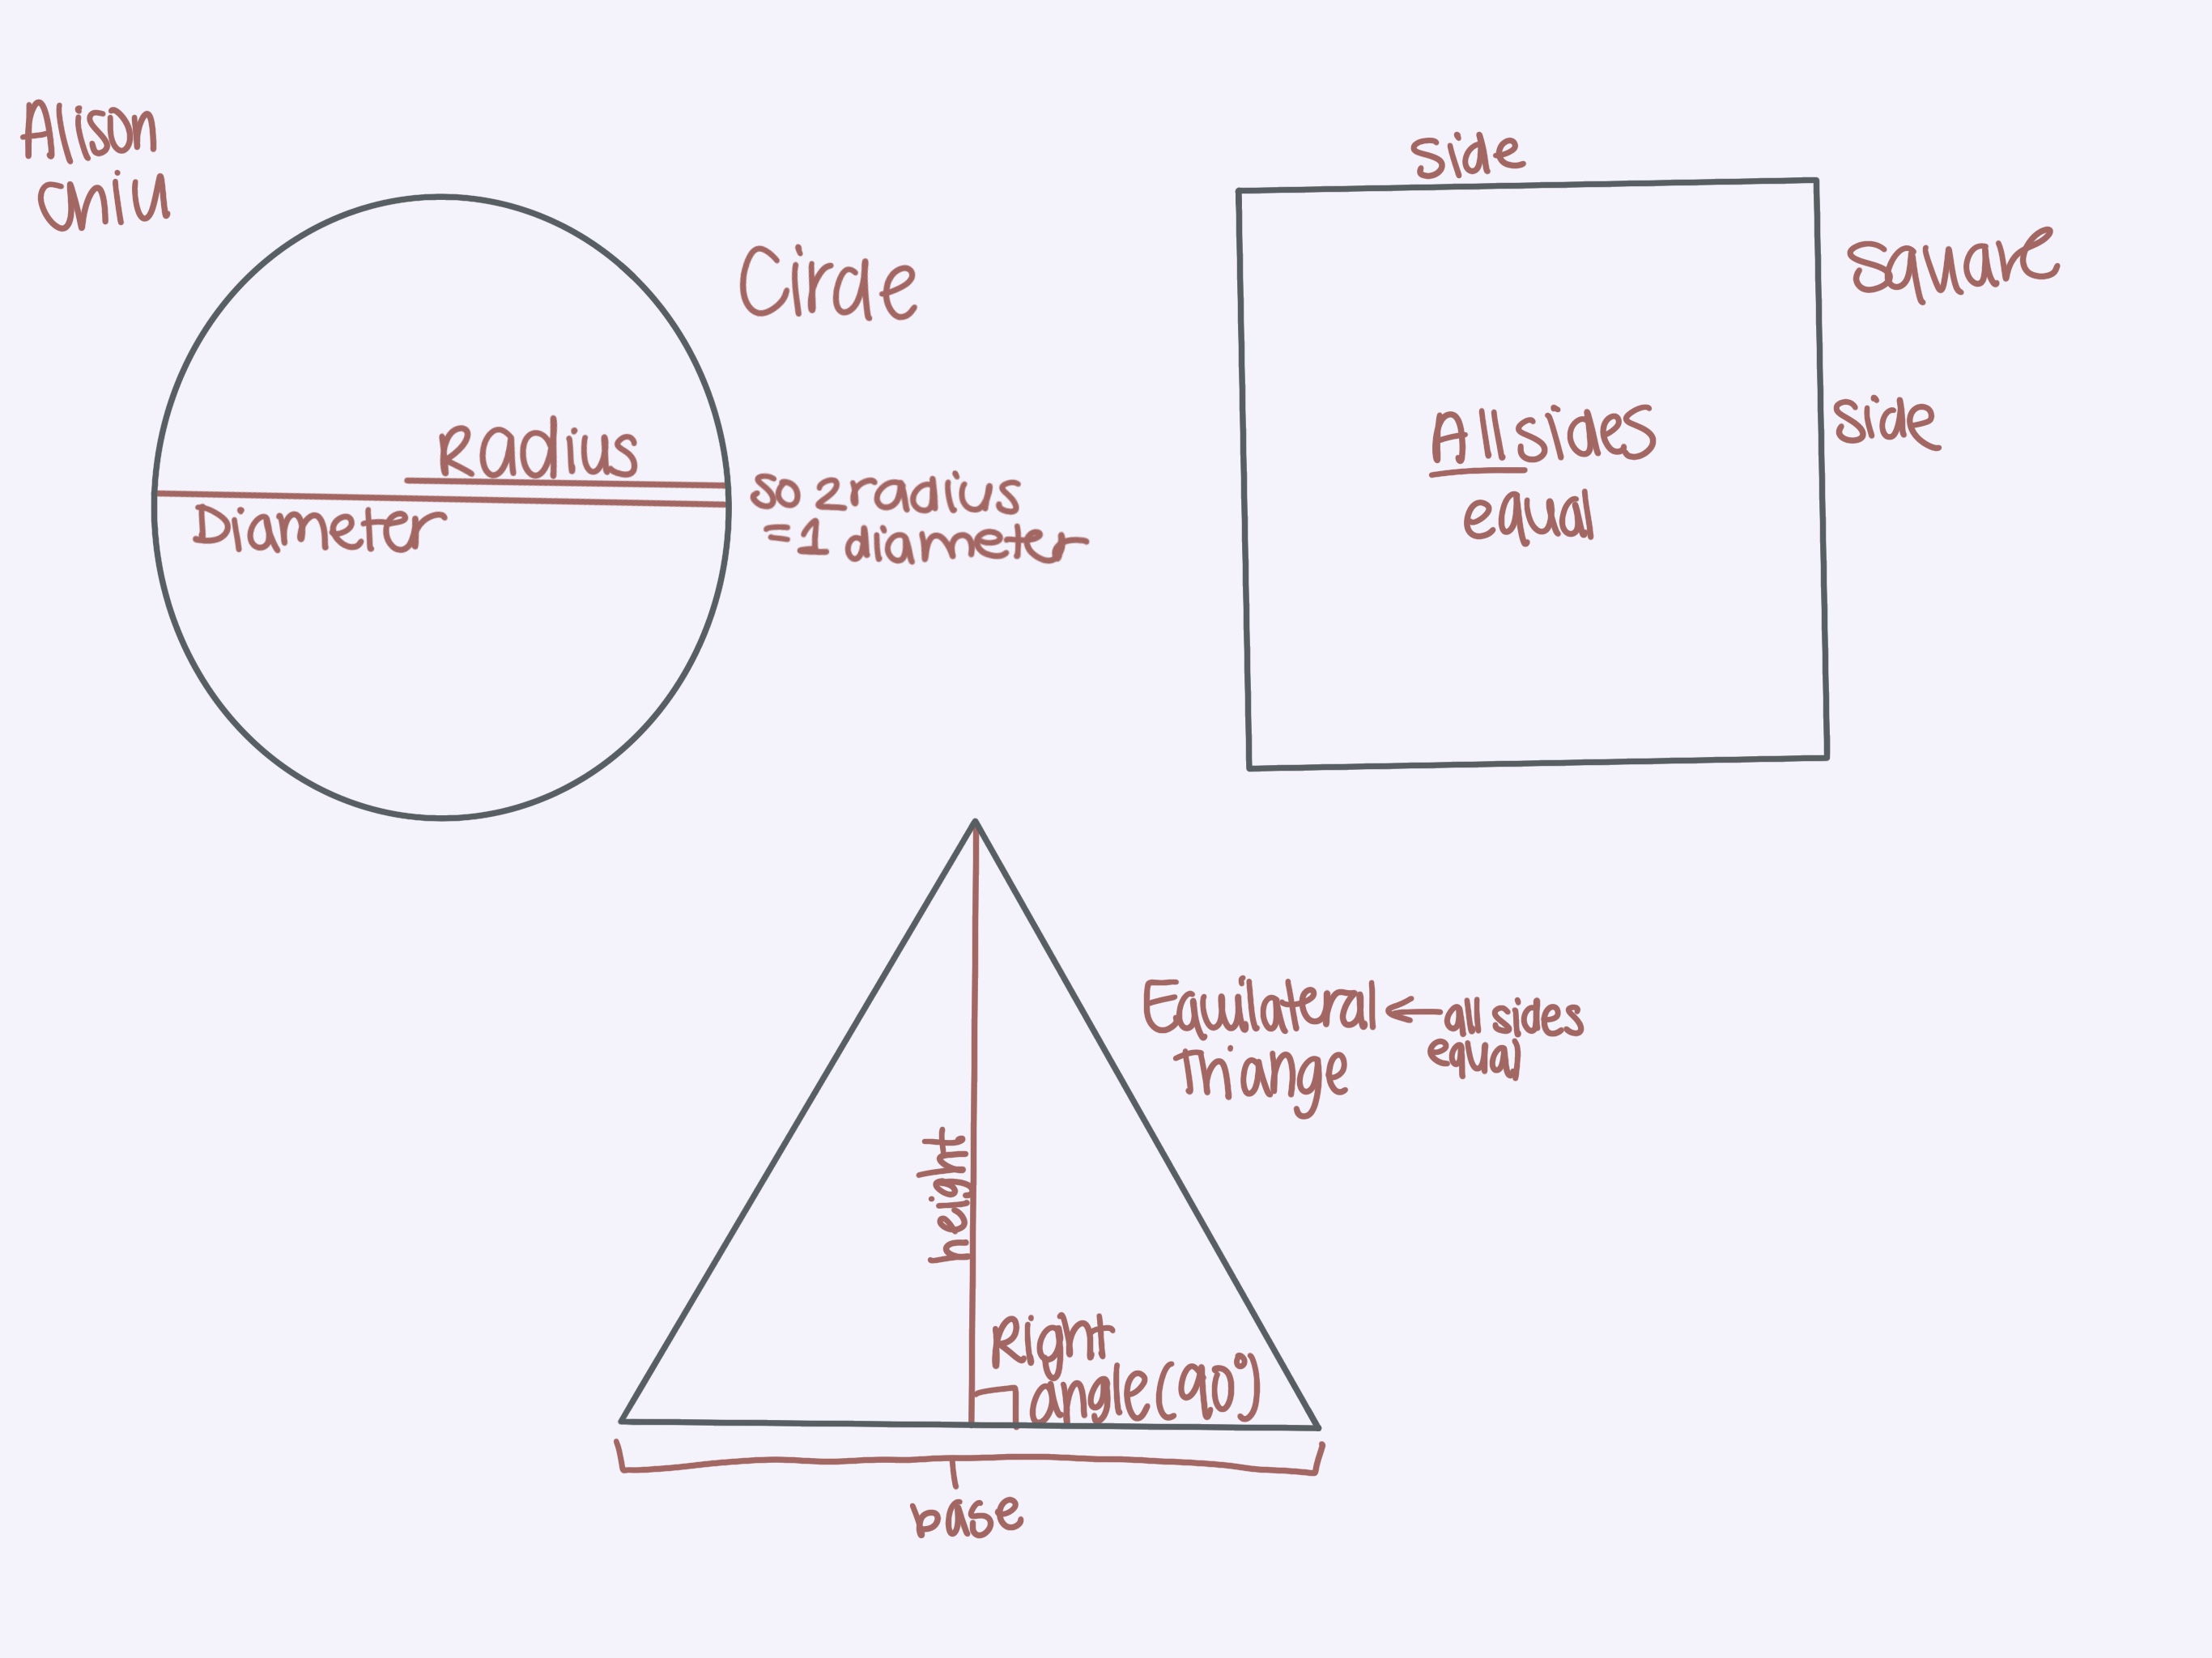 Allison
Chiu
Circle
Radius
Diameter
so 2 radius
=1 diameter
side
square
side
All sides
equal
Equilateral ← all sides
equal
Triange
height
Right
angle (90°)
base